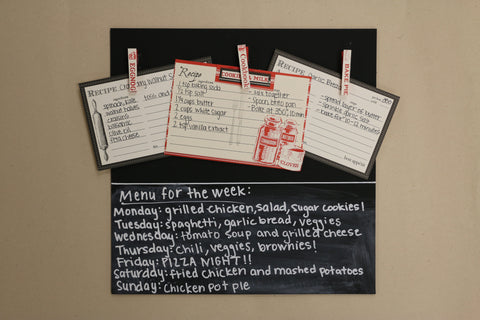 EGGNOG
Cookbook
BAKE PIE
RECIPE
Walnut
spinach, kale
walnut halves
craisins
balsamic
olive oil
feta cheese
Recipe
COOKIES & MILK
1 tsp baking soda
1 tsp salt
1 1/4 cups butter
2 cups white sugar
2 eggs
2 tsp vanilla extract
- Mix together
- Spoon onto pan
- Bake at 350, 10 min
RECIPE Garlic Bread
- Spread layer of butter
- sprinkle garlic salt
- Bake for 10-12 minutes
Menu for the week:
Monday: grilled chicken, salad, sugar cookies!
Tuesday: spaghetti, garlic bread, veggies
Wednesday: tomato soup and grilled cheese
Thursday: Chili, veggies, brownies!
Friday: PIZZA NIGHT!!
Saturday: fried chicken and mashed potatoes
Sunday: Chicken pot pie